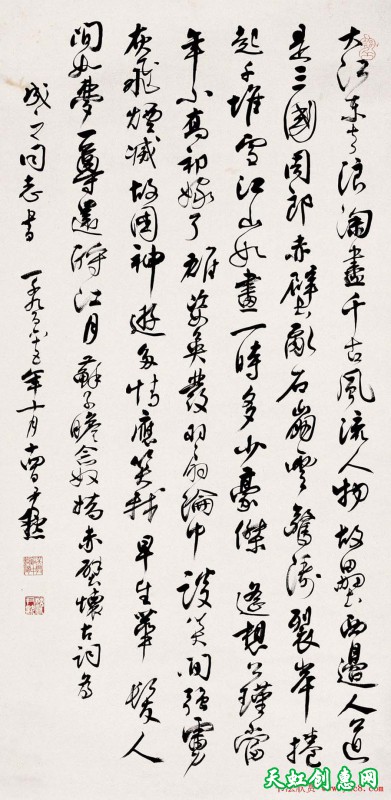 大江東去浪淘盡千古風流人物故壘西邊人道
是三國周郎赤壁亂石崩雲驚濤裂岸捲
起千堆雪江山如畫一時多少豪傑遙想公瑾當
年小喬初嫁了雄姿英發羽扇綸巾談笑間強虜
灰飛煙滅故國神遊多情應笑我早生華髮人
間如夢一尊還酹江月蘇子瞻念奴嬌赤壁懷古詞為
同志書 一千九百八十五年十月曹
天虹创意网